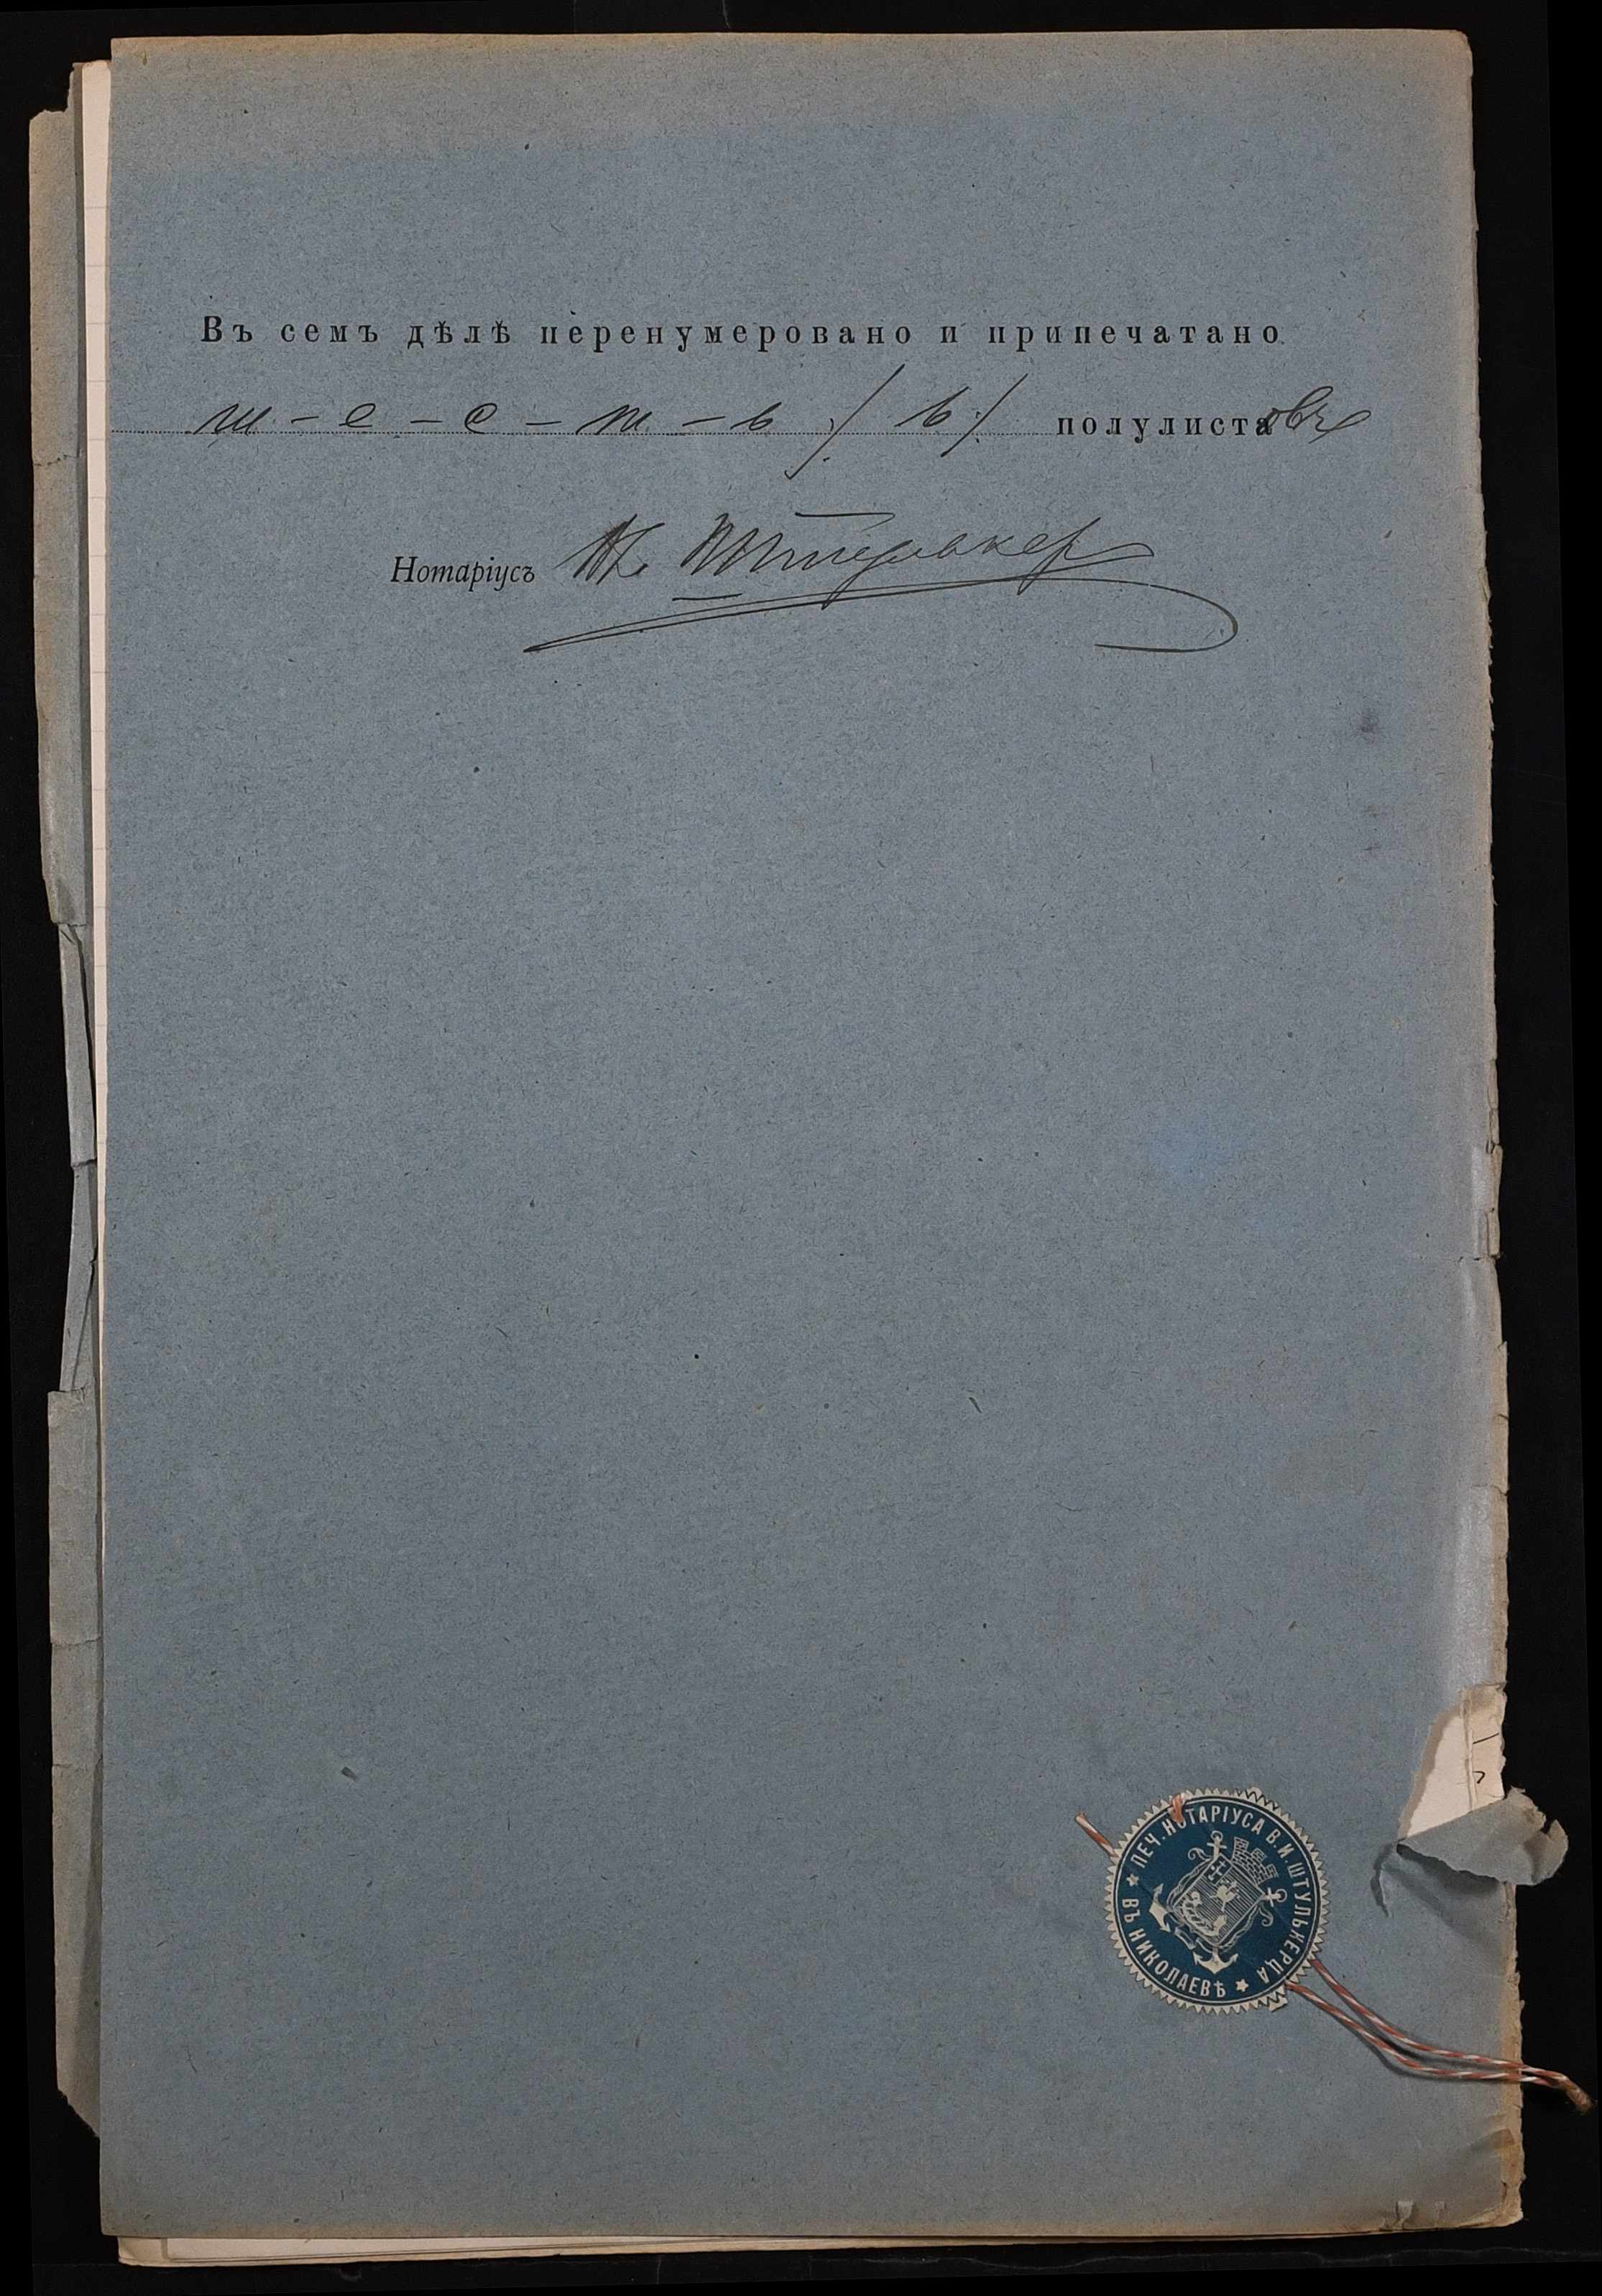 Въ семъ дѣлѣ перенумеровано и припечатано
ш-е-с-т-ь /6/ полулистовъ
Нотаріусъ В. Штулькерц
★ ПЕЧ. НОТАРІУСА В. И. ШТУЛЬКЕРЦА ★
ВЪ НИКОЛАЕВѢ